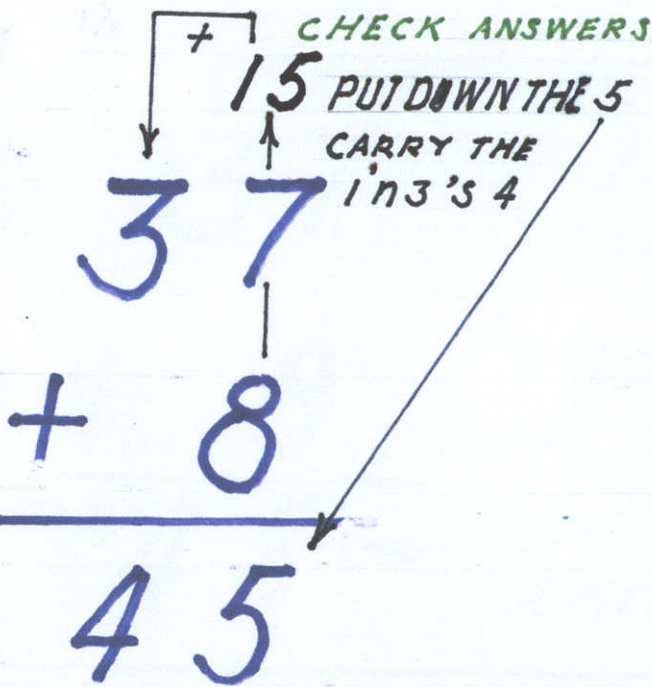 + CHECK ANSWERS
15 PUT DOWN THE 5
CARRY THE
1'n3's 4
37
+ 8
45